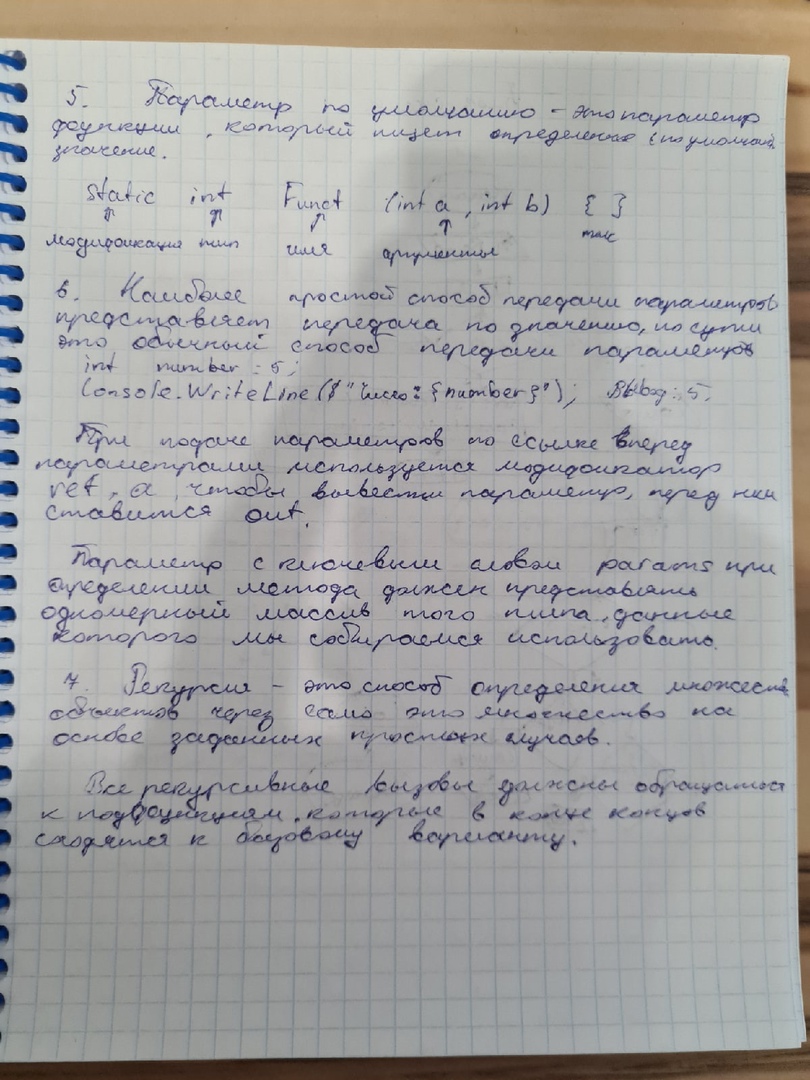 5. Параметр по умолчанию - это параметр
функции, который имеет определенное (по умолчан.
значение.
static int Funct (int a, int b) { }
модификация тип имя аргументы тело
6. Наиболее простой способ передачи параметров
представляет передача по значению, по сути
это обычный способ передачи параметров
int number = 5;
Console.WriteLine($"Число: {number}"); Вывод: 5.
При подаче параметров по ссылке вперед
параметрами используется модификатор
ref, а, чтобы вывести параметр, перед ним
ставится out.
Параметр с ключевым словом params при
определении метода должен представлять
одномерный массив того типа, данные
которого мы собираемся использовать.
7. Рекурсия - это способ определения множества
объектов через само это множество на
основе заданных простых случаев.
Все рекурсивные вызовы должны обращаться
к подфункциям, которые в конце концов
сходятся к базовому варианту.